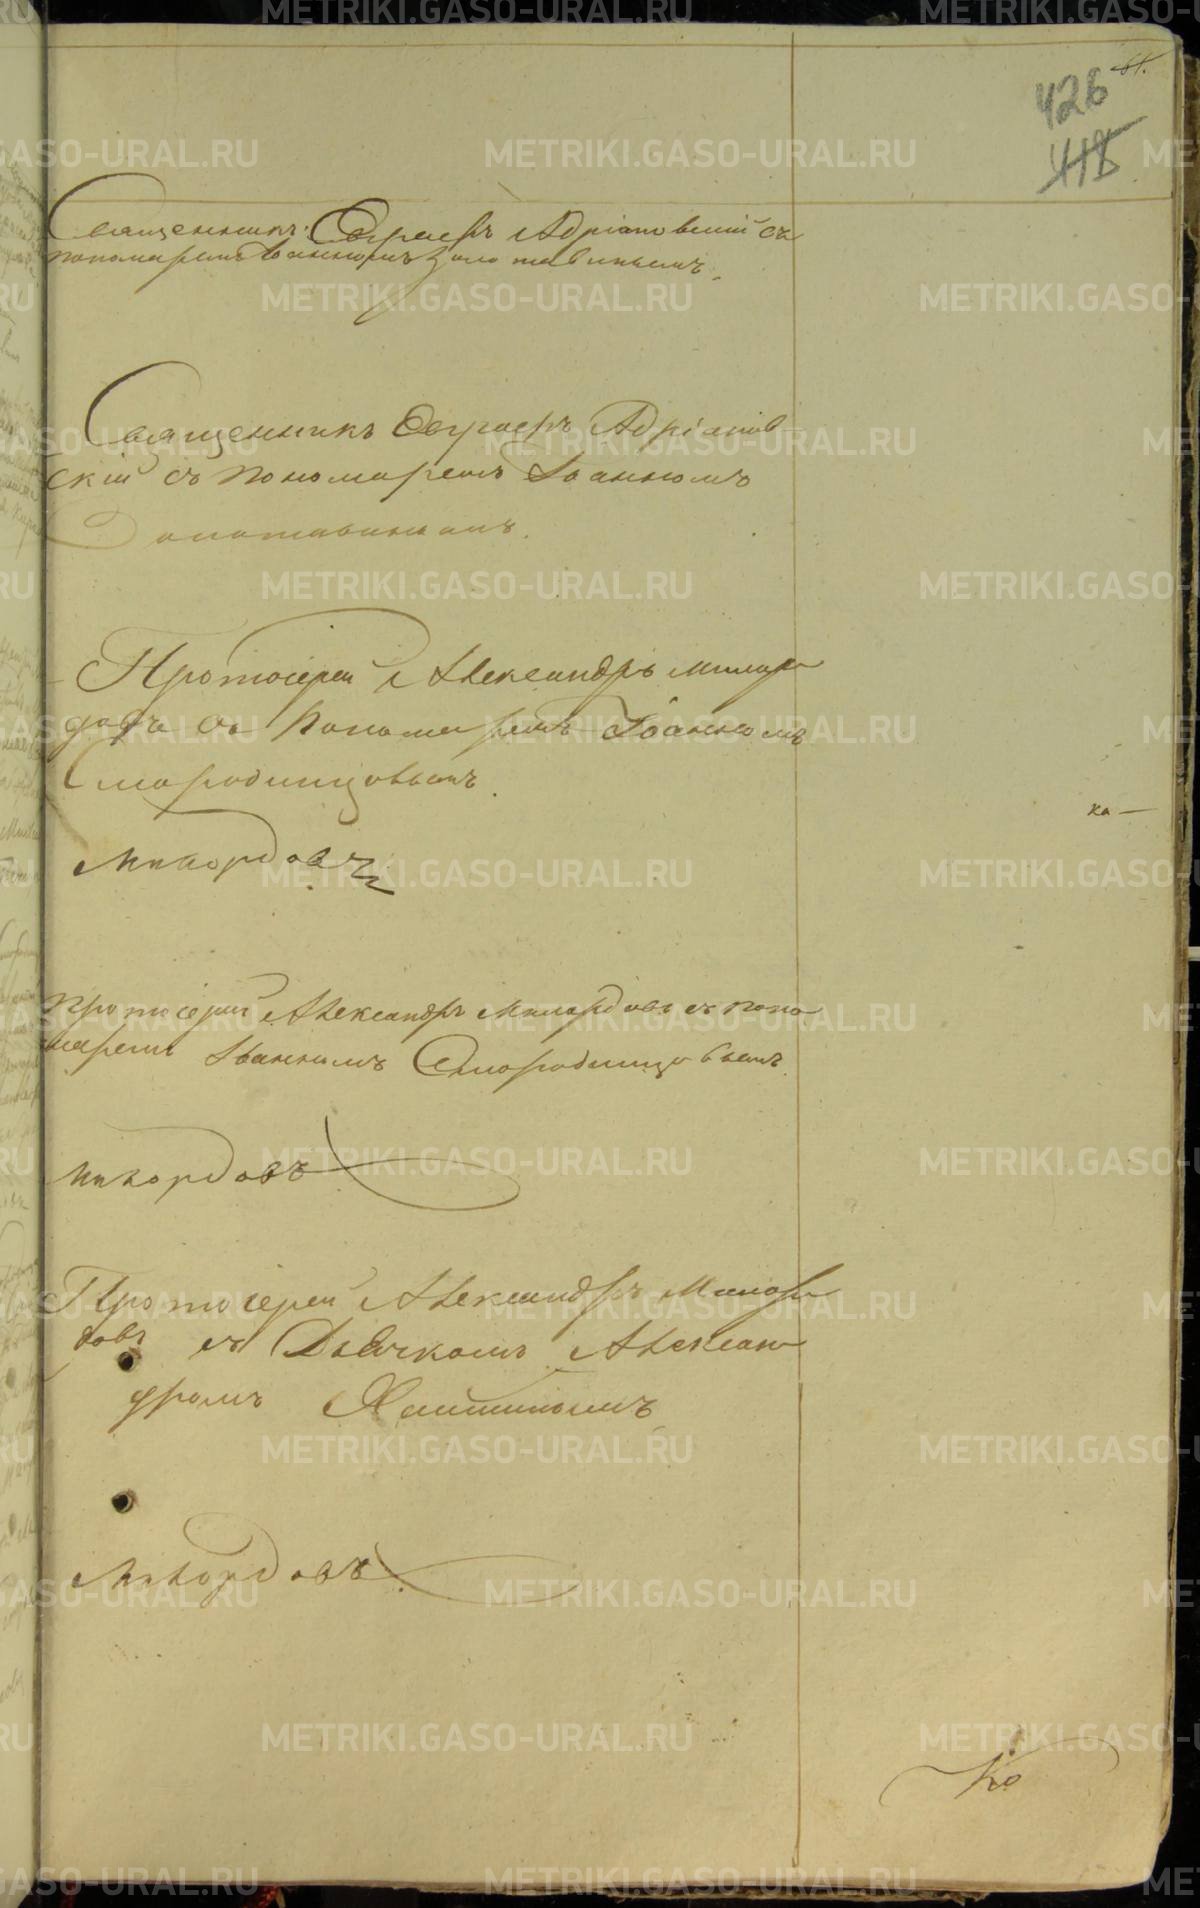 61.
426
418
Священникъ Евграфъ Адріановскій съ
пономаремъ Іоанномъ Золотавинымъ.
Священникъ Евграфъ Адріанов-
скій съ пономаремъ Іоанномъ
Золотавинымъ.
Протоіерей Александръ Милор-
довъ съ пономаремъ Іоанномъ
Смородинцовымъ.
Милордовъ
ка —
Протоіерей Александръ Милордовъ съ поно
маремъ Іоанномъ Смородинцовымъ.
Милордовъ
Протоіерей Александръ Милор
довъ съ Дьячкомъ Алексан
дромъ
Милордовъ
Ко